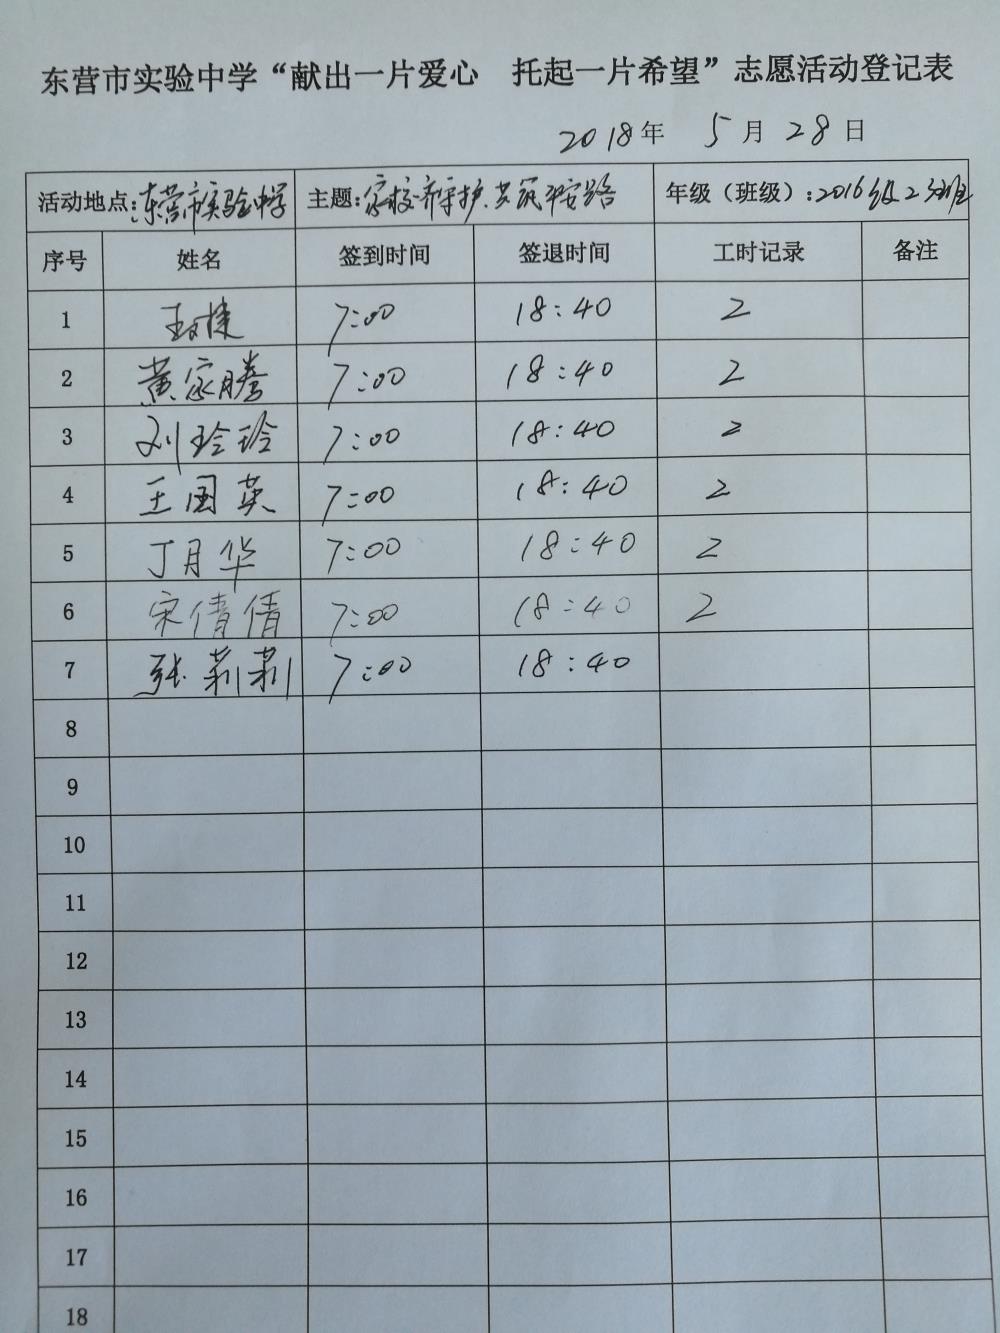 东营市实验中学“献出一片爱心 托起一片希望”志愿活动登记表
2018年 5月28日
活动地点:东营市实验中学 主题:家校齐守护.共筑平安路 年级(班级):2016级23班
序号 姓名 签到时间 签退时间 工时记录 备注
1 7:00 18:40 2
2 黄家腾 7:00 18:40 2
3 刘玲玲 7:00 18:40 2
4 王国英 7:00 18:40 2
5 丁月华 7:00 18:40 2
6 宋倩倩 7:00 18:40 2
7 张莉莉 7:00 18:40
8
9
10
11
12
13
14
15
16
17
18